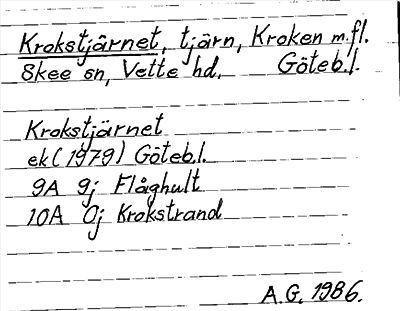 Krokstjärnet, tjärn, Kroken m.fl.
Skee sn, Vette hd. Göteb.l.
Krokstjärnet
ek (1979) Göteb.l.
9A 9j Flåghult
10A 0j Krokstrand
A.G. 1986.